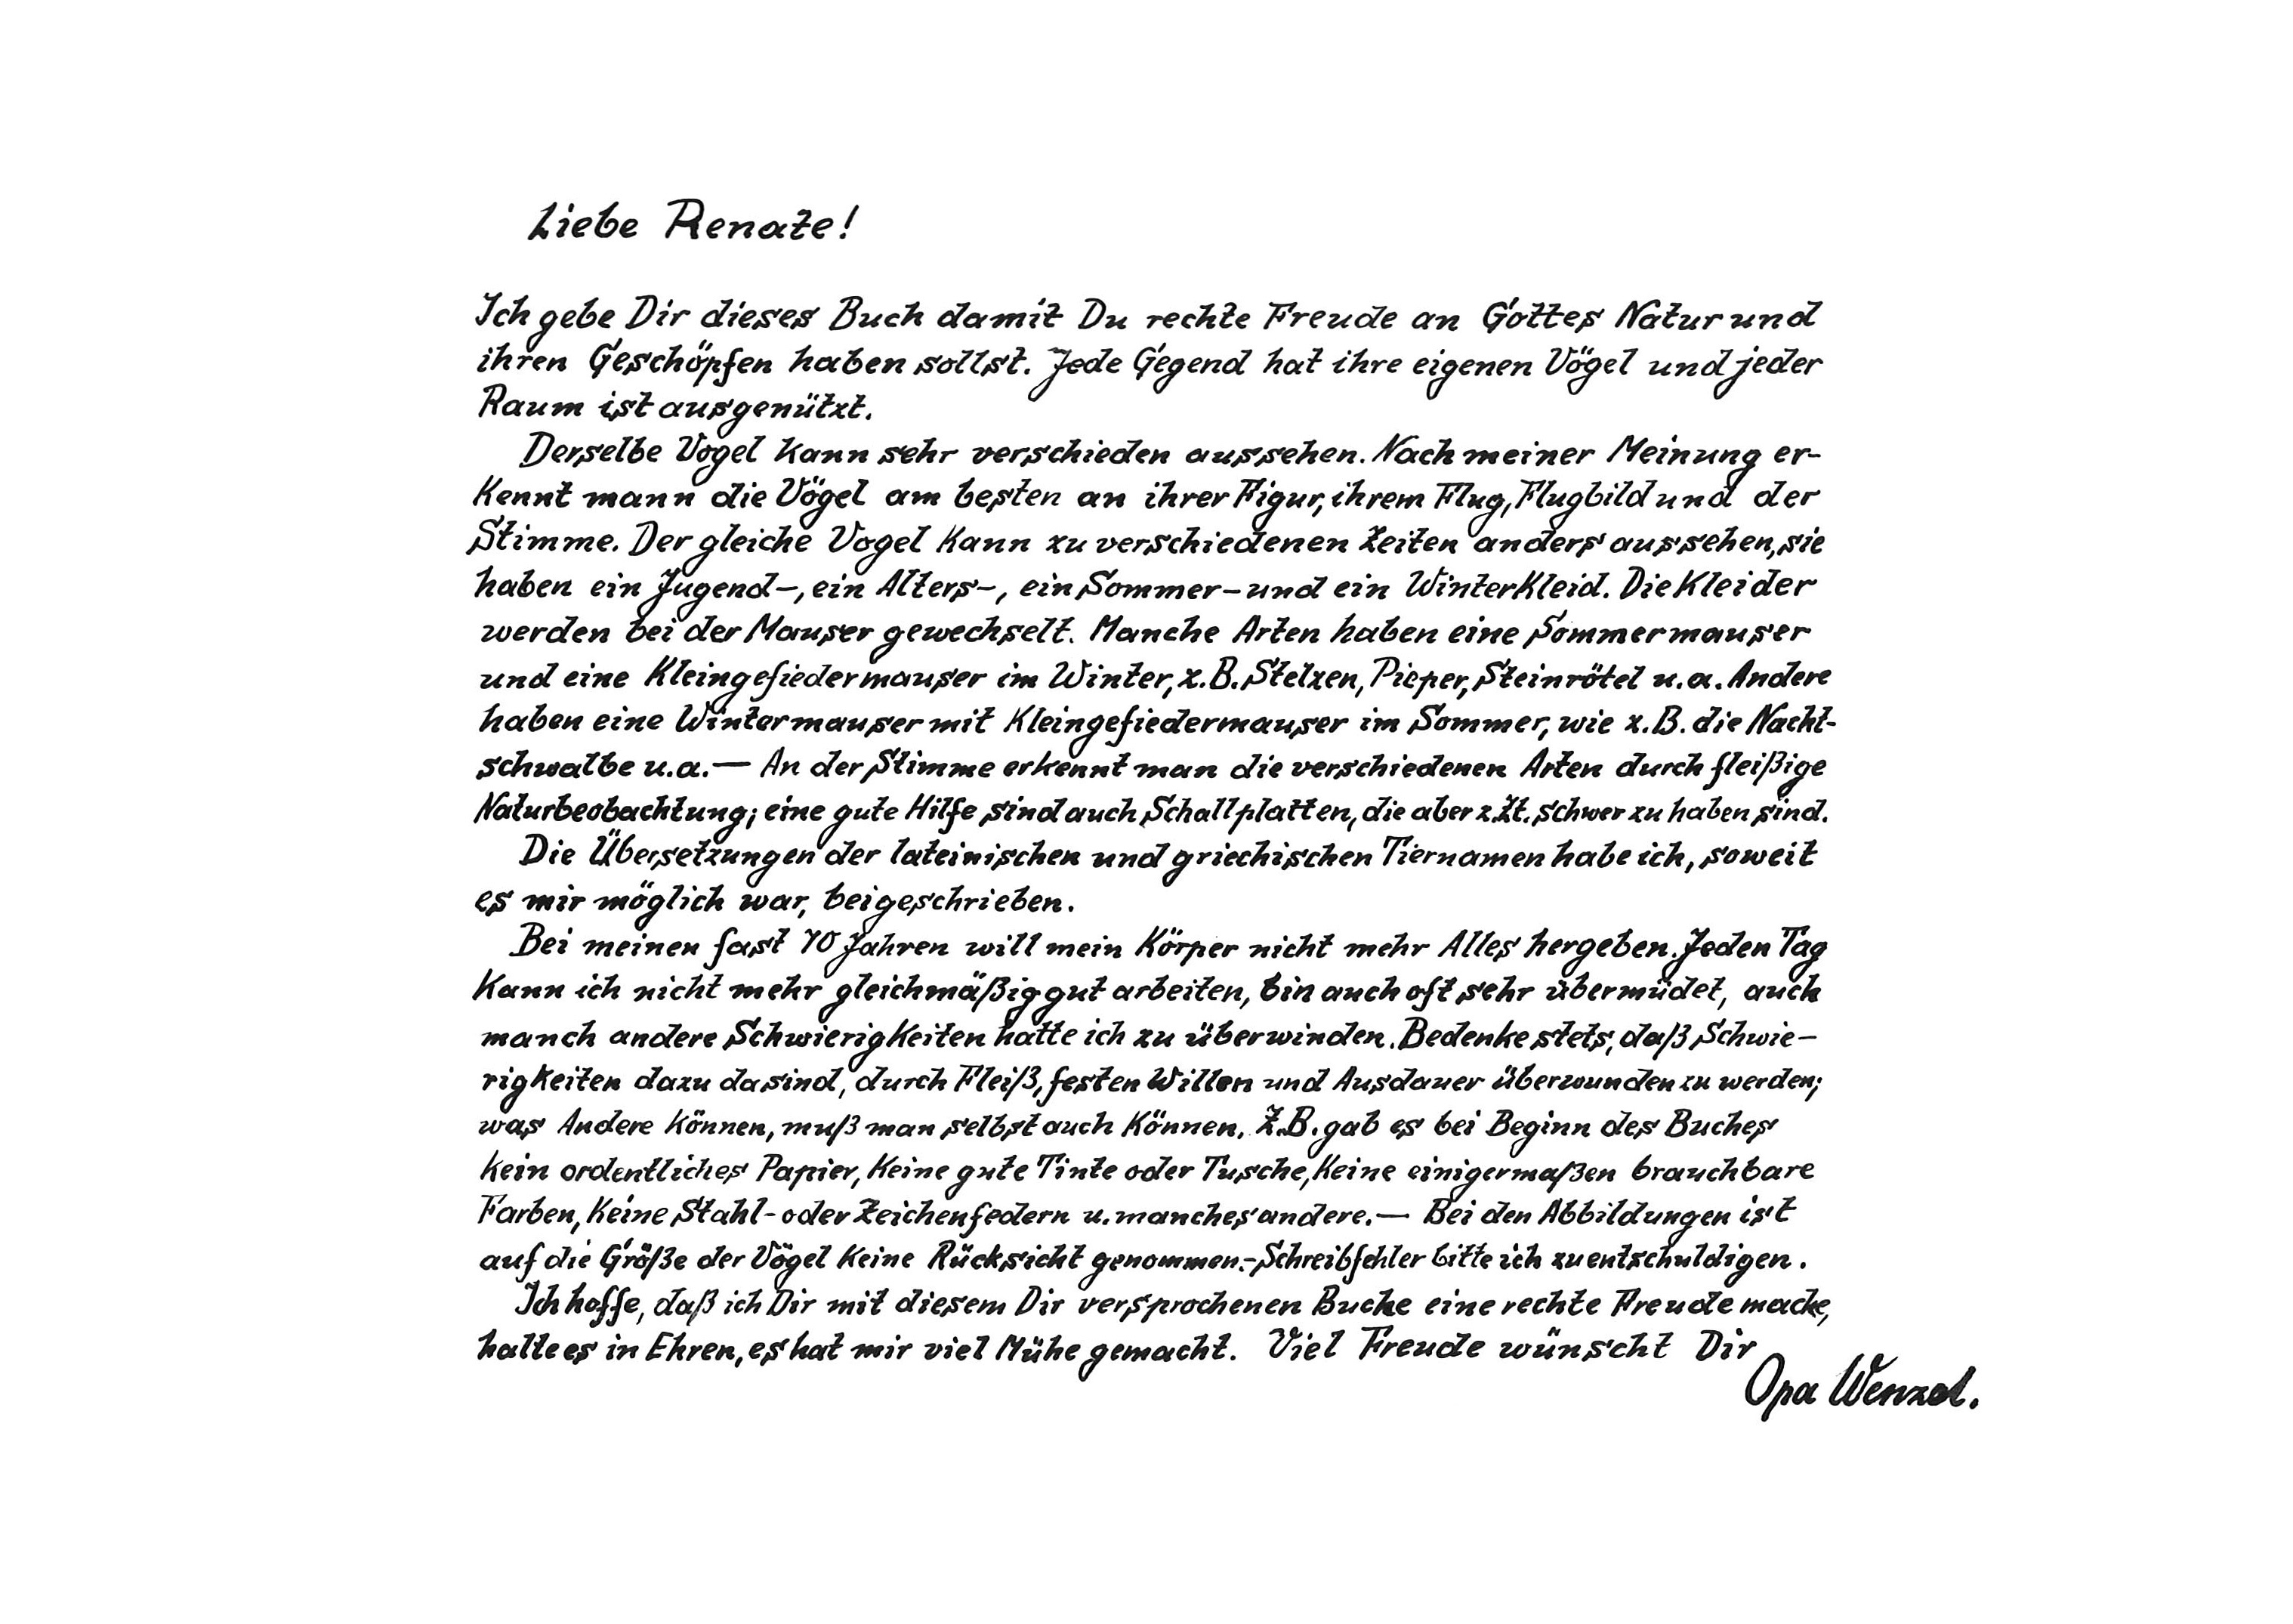 Liebe Renate!
Ich gebe Dir dieses Buch damit Du rechte Freude an Gottes Natur und
ihren Geschöpfen haben sollst. Jede Gegend hat ihre eigenen Vögel und jeder
Raum ist ausgenützt.
Derselbe Vogel kann sehr verschieden aussehen. Nach meiner Meinung er-
kennt mann die Vögel am besten an ihrer Figur, ihrem Flug, Flugbild und der
Stimme. Der gleiche Vogel kann zu verschiedenen Zeiten anders aussehen, sie
haben ein Jugend-, ein Alters-, ein Sommer- und ein Winterkleid. Die Kleider
werden bei der Mauser gewechselt. Manche Arten haben eine Sommermauser
und eine Kleingefiedermauser im Winter, z.B. Stelzen, Pieper, Steinrötel u.a. Andere
haben eine Wintermauser mit Kleingefiedermauser im Sommer, wie z.B. die Nacht-
schwalbe u.a.— An der Stimme erkennt man die verschiedenen Arten durch fleißige
Naturbeobachtung; eine gute Hilfe sind auch Schallplatten, die aber z.Zt. schwer zu haben sind.
Die Übersetzungen der lateinischen und griechischen Tiernamen habe ich, soweit
es mir möglich war, beigeschrieben.
Bei meinen fast 70 Jahren will mein Körper nicht mehr Alles hergeben. Jeden Tag
kann ich nicht mehr gleichmäßig gut arbeiten, bin auch oft sehr übermüdet, auch
manch andere Schwierigkeiten hatte ich zu überwinden. Bedenke stets, daß Schwie-
rigkeiten dazu da sind, durch Fleiß, festen Willen und Ausdauer überwunden zu werden;
was Andere können, muß man selbst auch können. Z.B. gab es bei Beginn des Buches
kein ordentliches Papier, keine gute Tinte oder Tusche, keine einigermaßen brauchbare
Farben, keine Stahl- oder Zeichenfedern u. manches andere.— Bei den Abbildungen ist
auf die Größe der Vögel keine Rücksicht genommen.- Schreibfehler bitte ich zu entschuldigen.
Ich hoffe, daß ich Dir mit diesem Dir versprochenen Buche eine rechte Freude mache,
halte es in Ehren, es hat mir viel Mühe gemacht. Viel Freude wünscht Dir
Opa Wenzel.